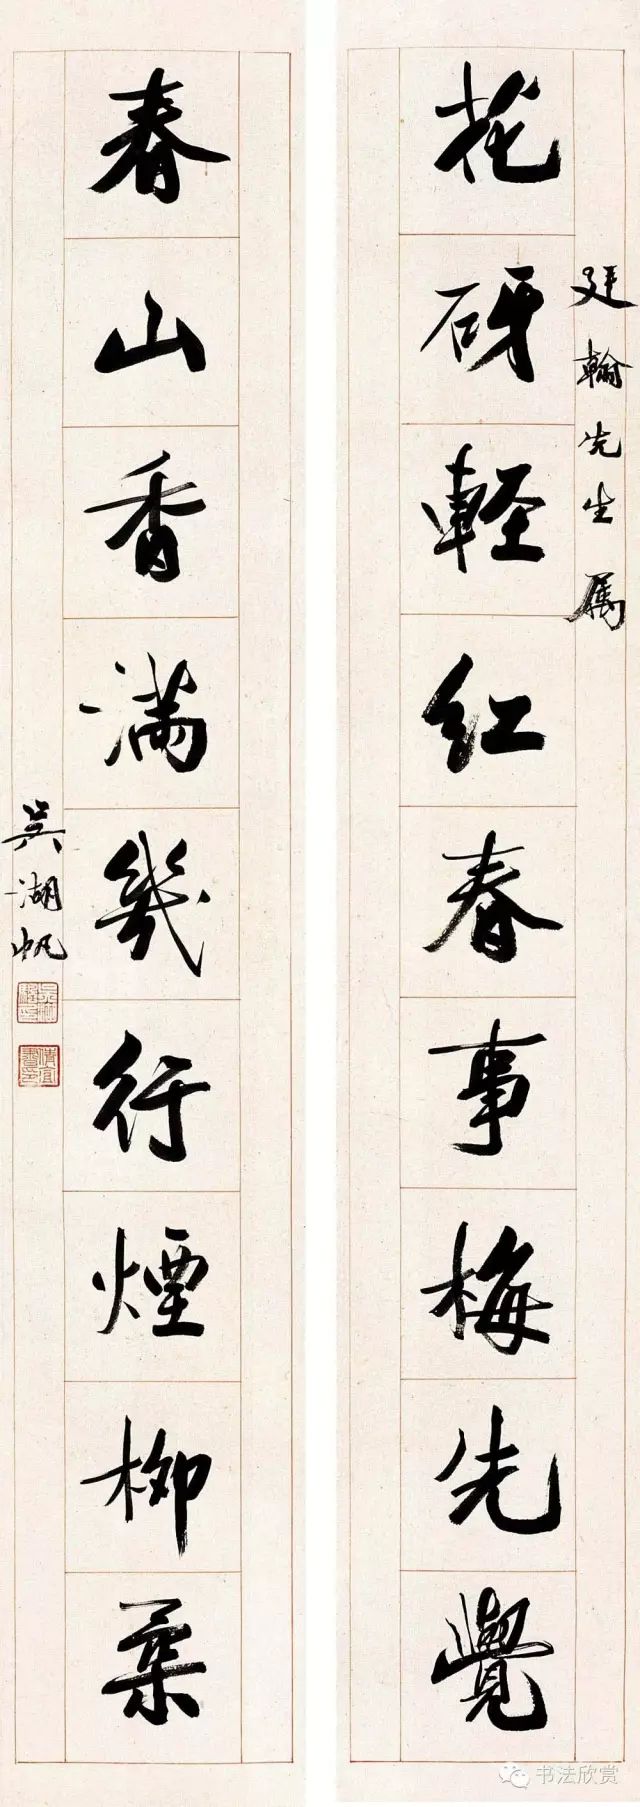 廷翰先生属
花砑軽红春事梅先覺
春山香满幾行煙柳柔
吴湖帆
书法欣赏